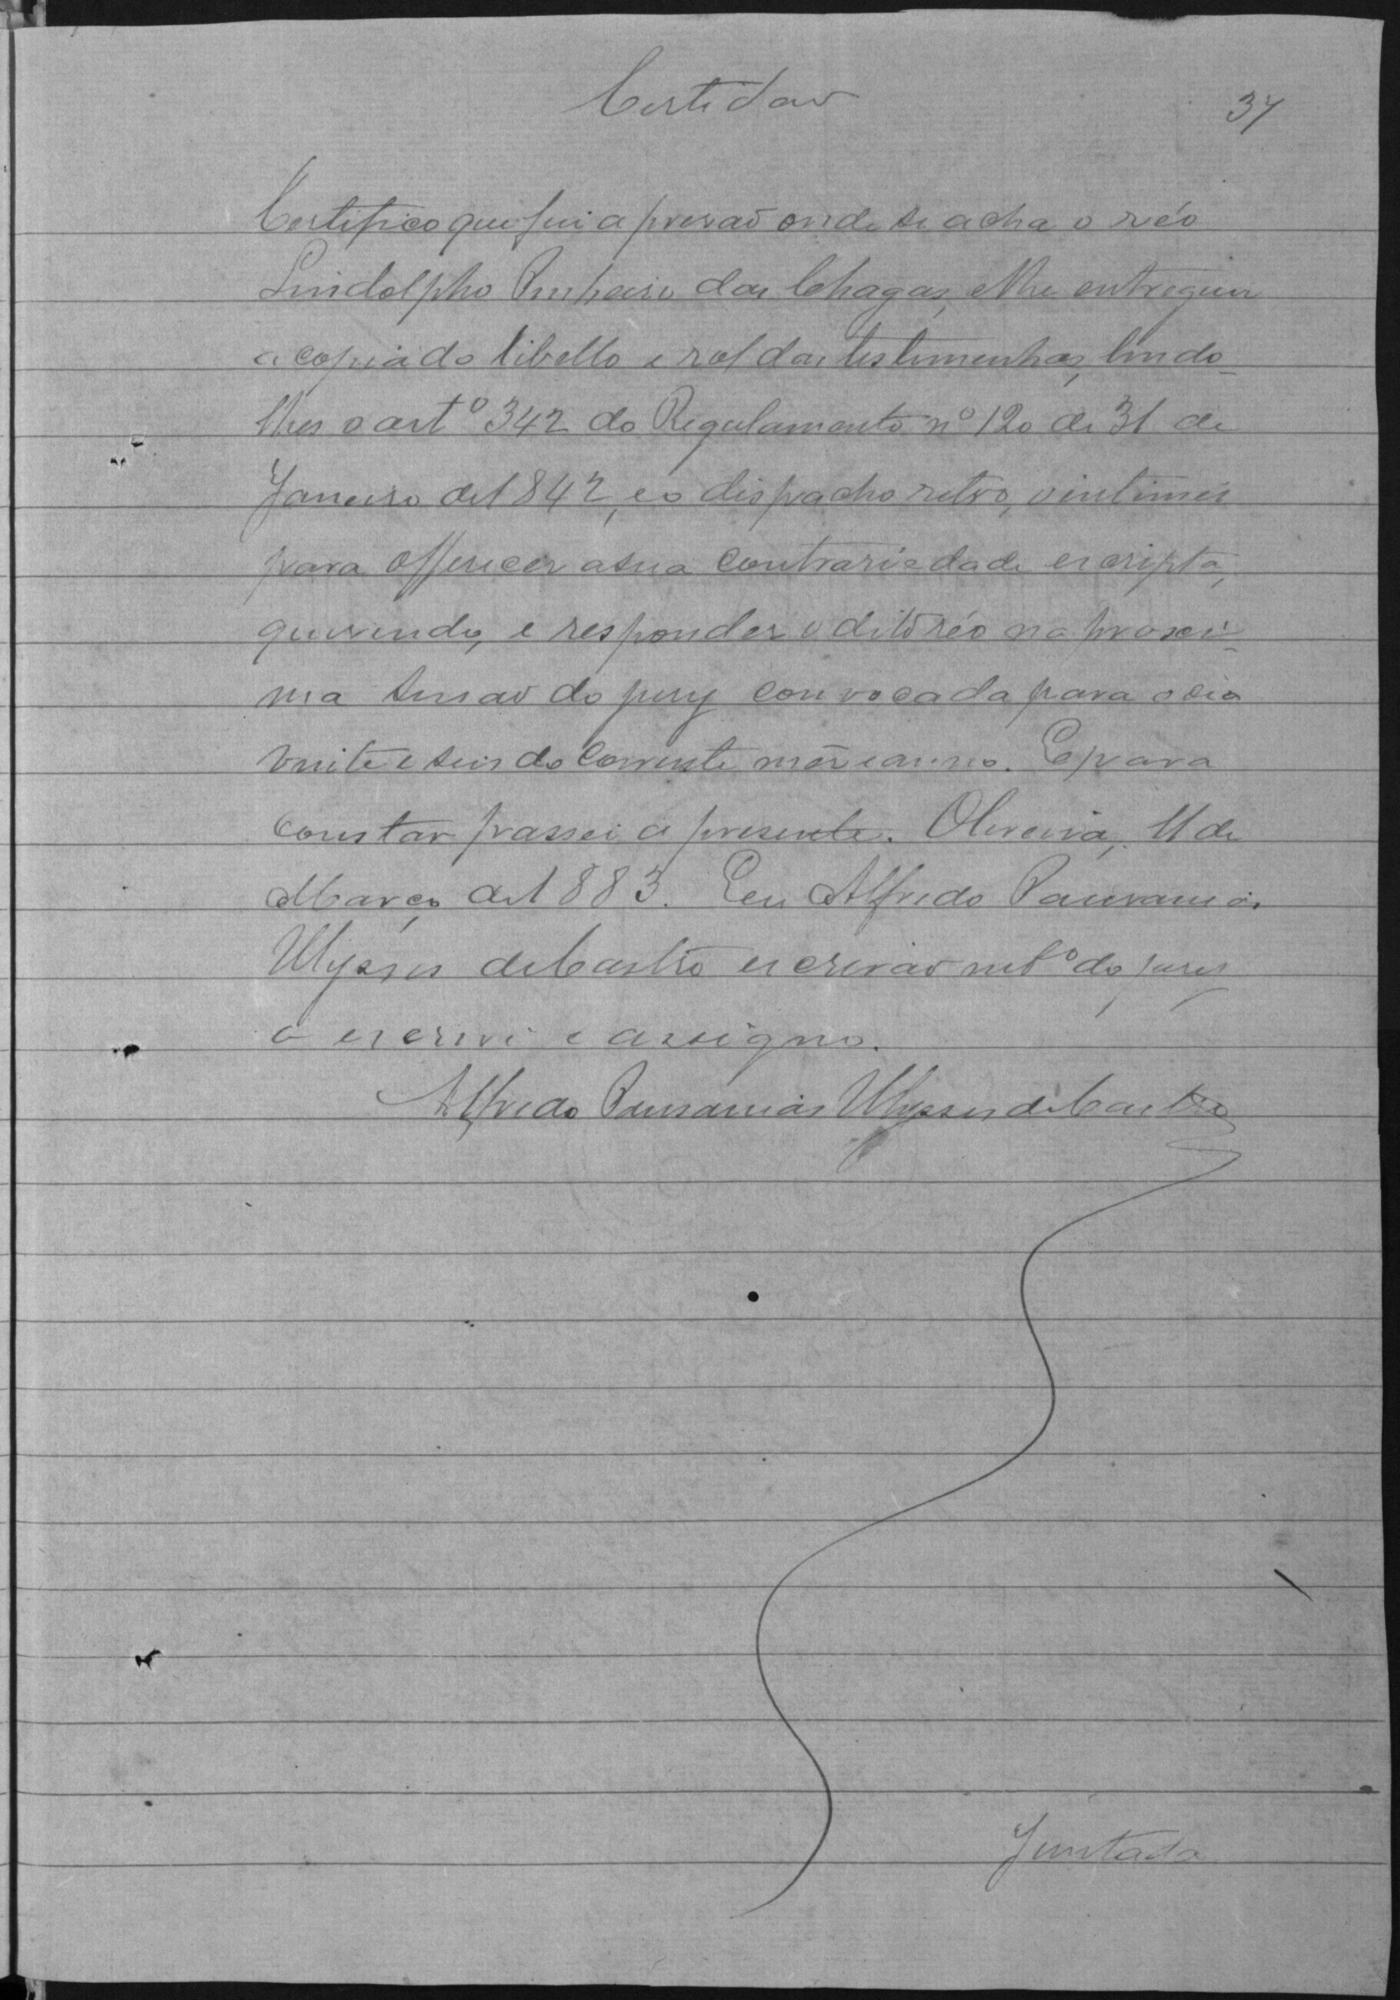 Certidão
37
Certifico que fui a prisão onde se acha o réo
Lindolpho Pinheiro das Chagas, e lhe entreguei
a copia do libello e rol das testimunhas, lendo-
lhes o artº 342 do Regulamento nº 120 de 31 de
Janeiro de 1842, e o dispacho retro, o intimei
para offerecer a sua contrariedade escripta,
querendo, e responder o dito réo na proxi-
ma sessão do jury convocada para o dia
vinte e seis do corrente mez e anno. E para
constar passei a presente. Oliveira, 11 de
Março de 1883. Eu Alfredo Pausanias
Ulysses de Castro escrivão do jury
o escrivi e assigno.
Alfredo Pausanias Ulysses de Castro
Juntada